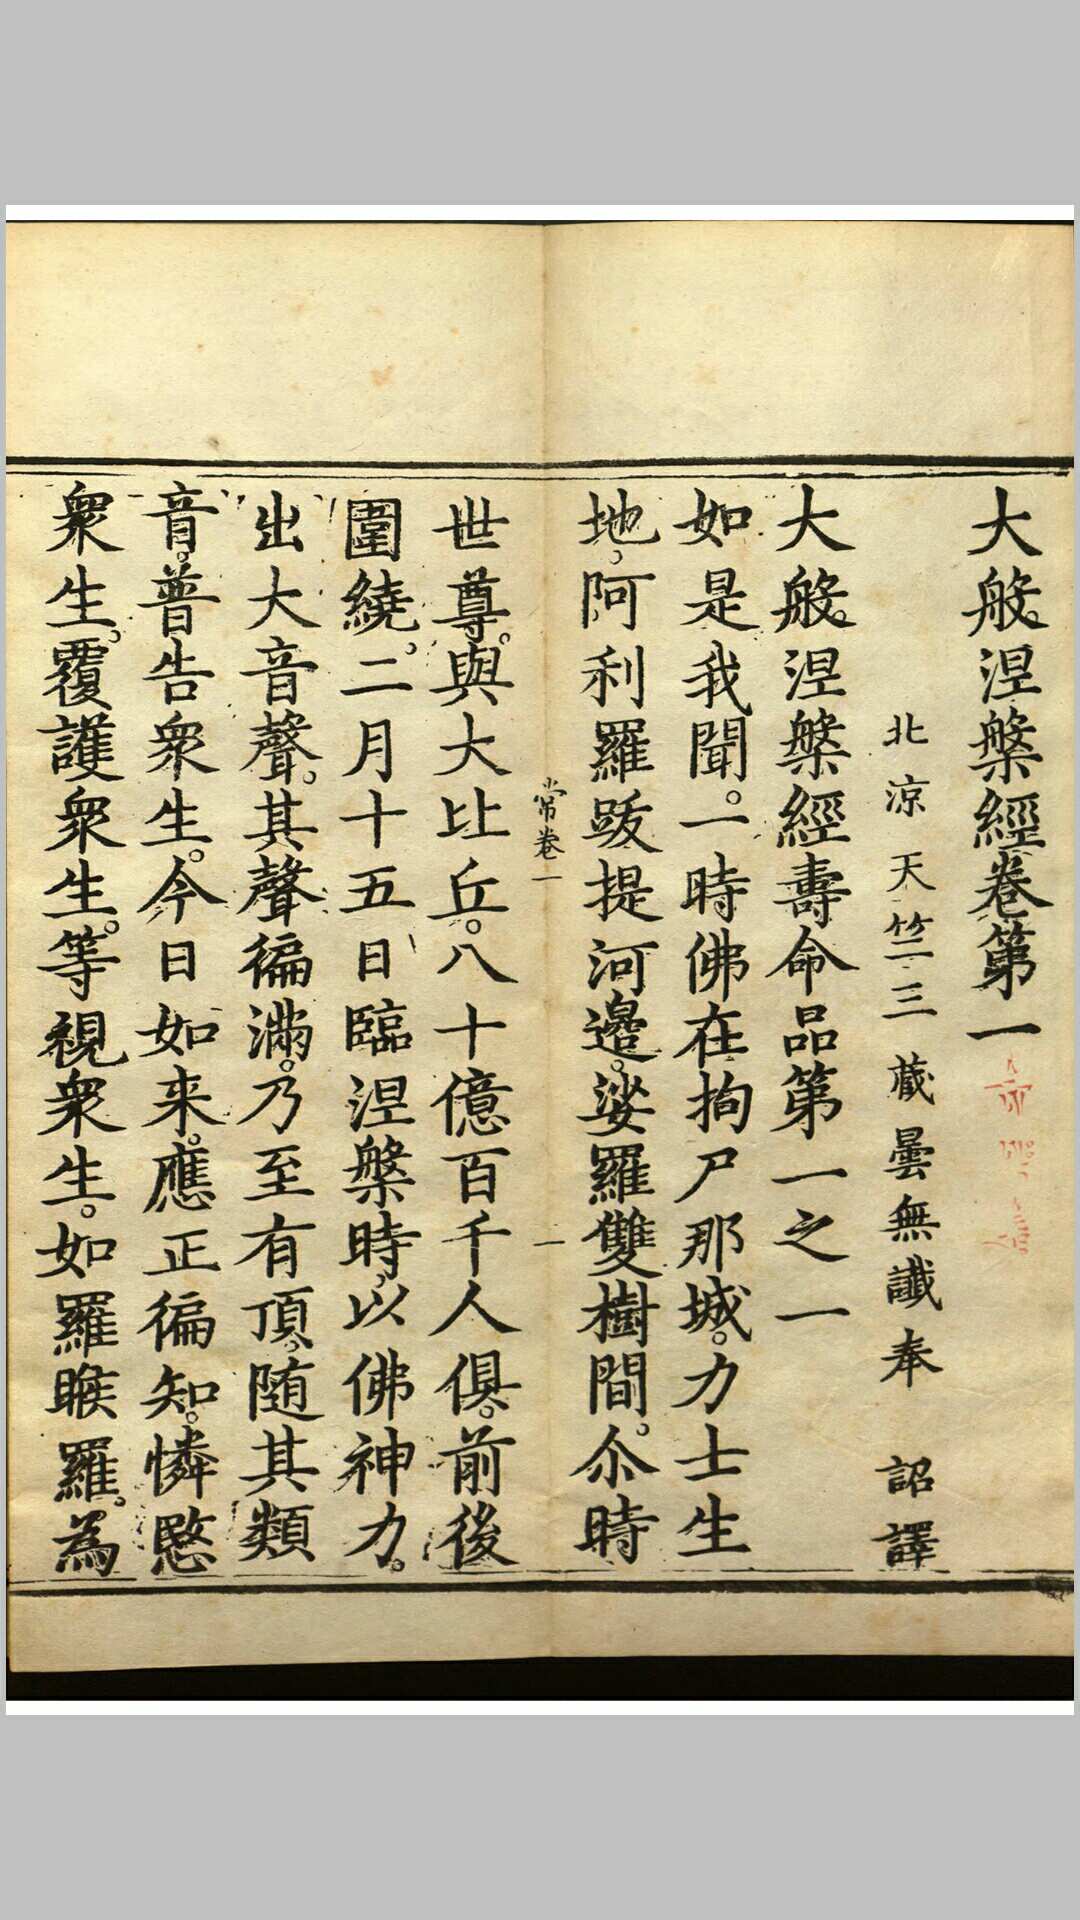 大般涅槃經卷第一
北涼天竺三藏曇無讖奉 詔譯
大般涅槃經壽命品第一之一
如是我聞。一時佛在拘尸那城。力士生
地。阿利羅跋提河邊。娑羅雙樹間。尒時
常卷一 一
世尊。與大比丘。八十億百千人俱。前後
圍繞。二月十五日臨涅槃時。以佛神力。
出大音聲。其聲徧滿。乃至有頂。随其類
音。普告衆生。今日如来。應正徧知。憐愍
衆生。覆護衆生。等視衆生。如羅睺羅。為